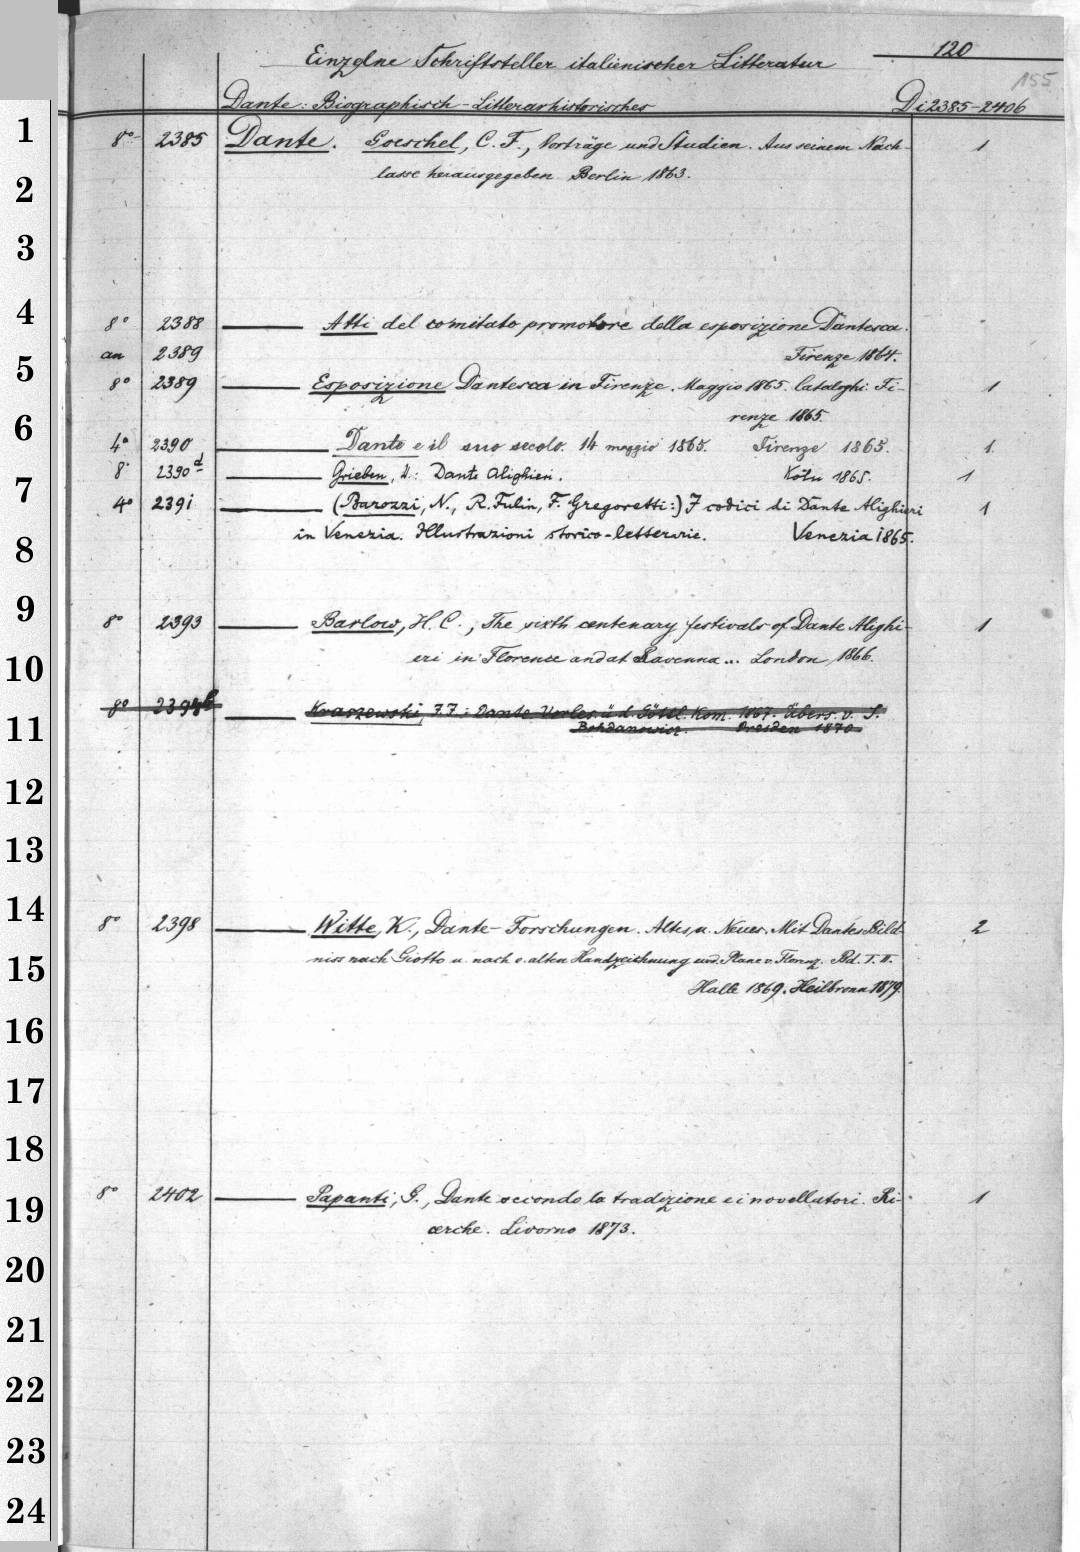 120
Einzelne Schriftsteller italienischer Litteratur
155
Dante: Biographisch-Litterarhistorisches Di 2385-2406
1
8° 2385 Dante. Goeschel, C. F., Vorträge und Studien. Aus seinem Nach- 1
2
lasse herausgegeben. Berlin 1863.
3
4
8° 2388 Atti del comitato promotore della esposizione Dantesca.
an 2389 Firenze 1864.
5
8° 2389 Esposizione Dantesca in Firenze. Maggio 1865. Cataloghi. Fi- 1
renze 1865.
6
4° 2390 Dante e il suo secolo. 14 maggio 1865. Firenze 1865. 1
8° 2390d Grieben, H.: Dante Alighieri. Köln 1865. 1
7
4° 2391 (Barozzi, N., R. Fulin, F. Gregoretti:) I codici di Dante Alighieri 1
in Venezia. Illustrazioni storico-letterarie. Venezia 1865.
8
9
8° 2393 Barlow, H. C., The sixth centenary festivals of Dante Alighi- 1
10
eri in Florence and at Ravenna... London, 1866.
8° 2394b Kraszewski, J. I.: Dante Vorles. ü. d. Göttl. Kom. 1867. Übers. v. S.
11
Bohdanowicz. Dresden 1870
12
13
14
8° 2398 Witte, K., Dante-Forschungen. Altes u. Neues. Mit Dantes Bild- 2
15
niss nach Giotto u. nach e. alten Handzeichnung und Plane v. Florenz. Bd. I. II.
Halle 1869. Heilbronn 1879.
16
17
18
19
8° 2402 Papanti, G., Dante secondo la tradizione e i novellatori. Ri- 1
cerche. Livorno 1873.
20
21
22
23
24